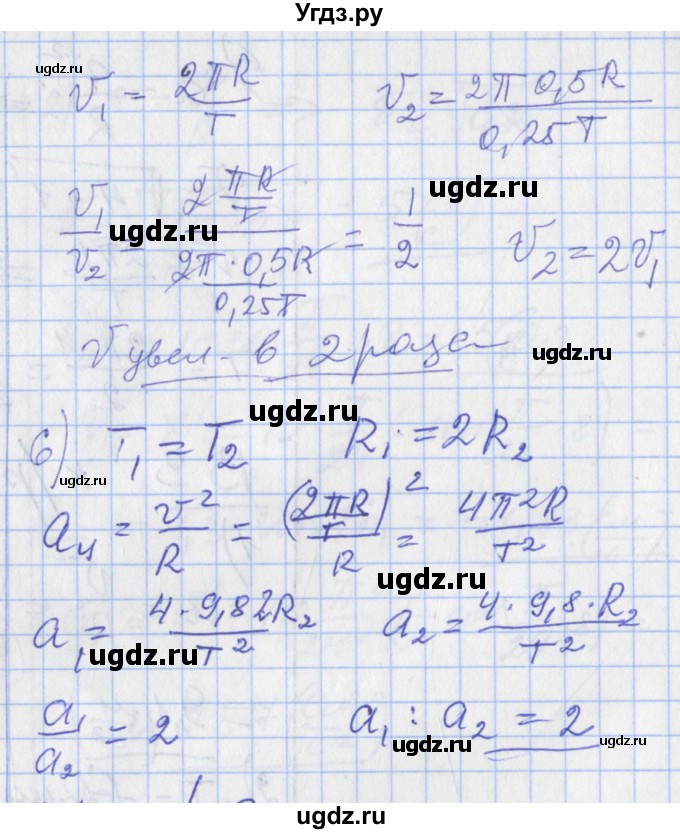 Угдз.ру
ugdz.ru
V₁ = 2πR/T V₂ = 2π 0,5R/0,25T
ugdz.ru
V₁/V₂ = (2 πR/T)/(2π·0,5R/0,25T) = 1/2 V₂ = 2V₁
ugdz.ru
ugdz.ru
V увел - в 2 раза
ugdz.ru
ugdz.ru
6) T₁ = T₂ R₁ = 2R₂
ugdz.ru
aц = v²/R = (2πR/T)²/R = 4π²R/T²
ugdz.ru
ugdz.ru
a₁ = 4·9,8 2R₂/T² a₂ = 4·9,8·R₂/T²
ugdz.ru
a₁/a₂ = 2 a₁ : a₂ = 2
ugdz.ru
ugdz.ru
ugdz.ru